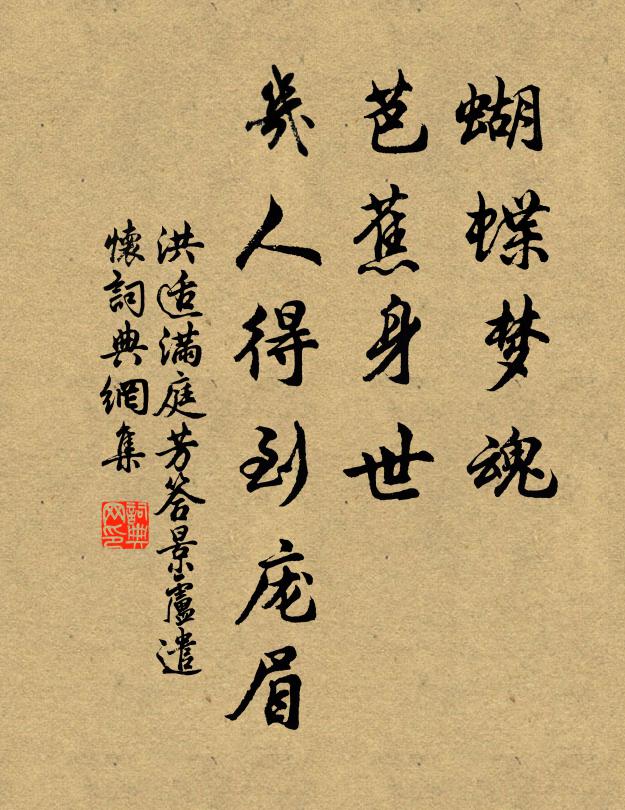 蝴蝶梦魂
芭蕉身世
幾人得到庞眉
洪适滿庭芳答景盧遣
懷詞典網集
詞典
网印